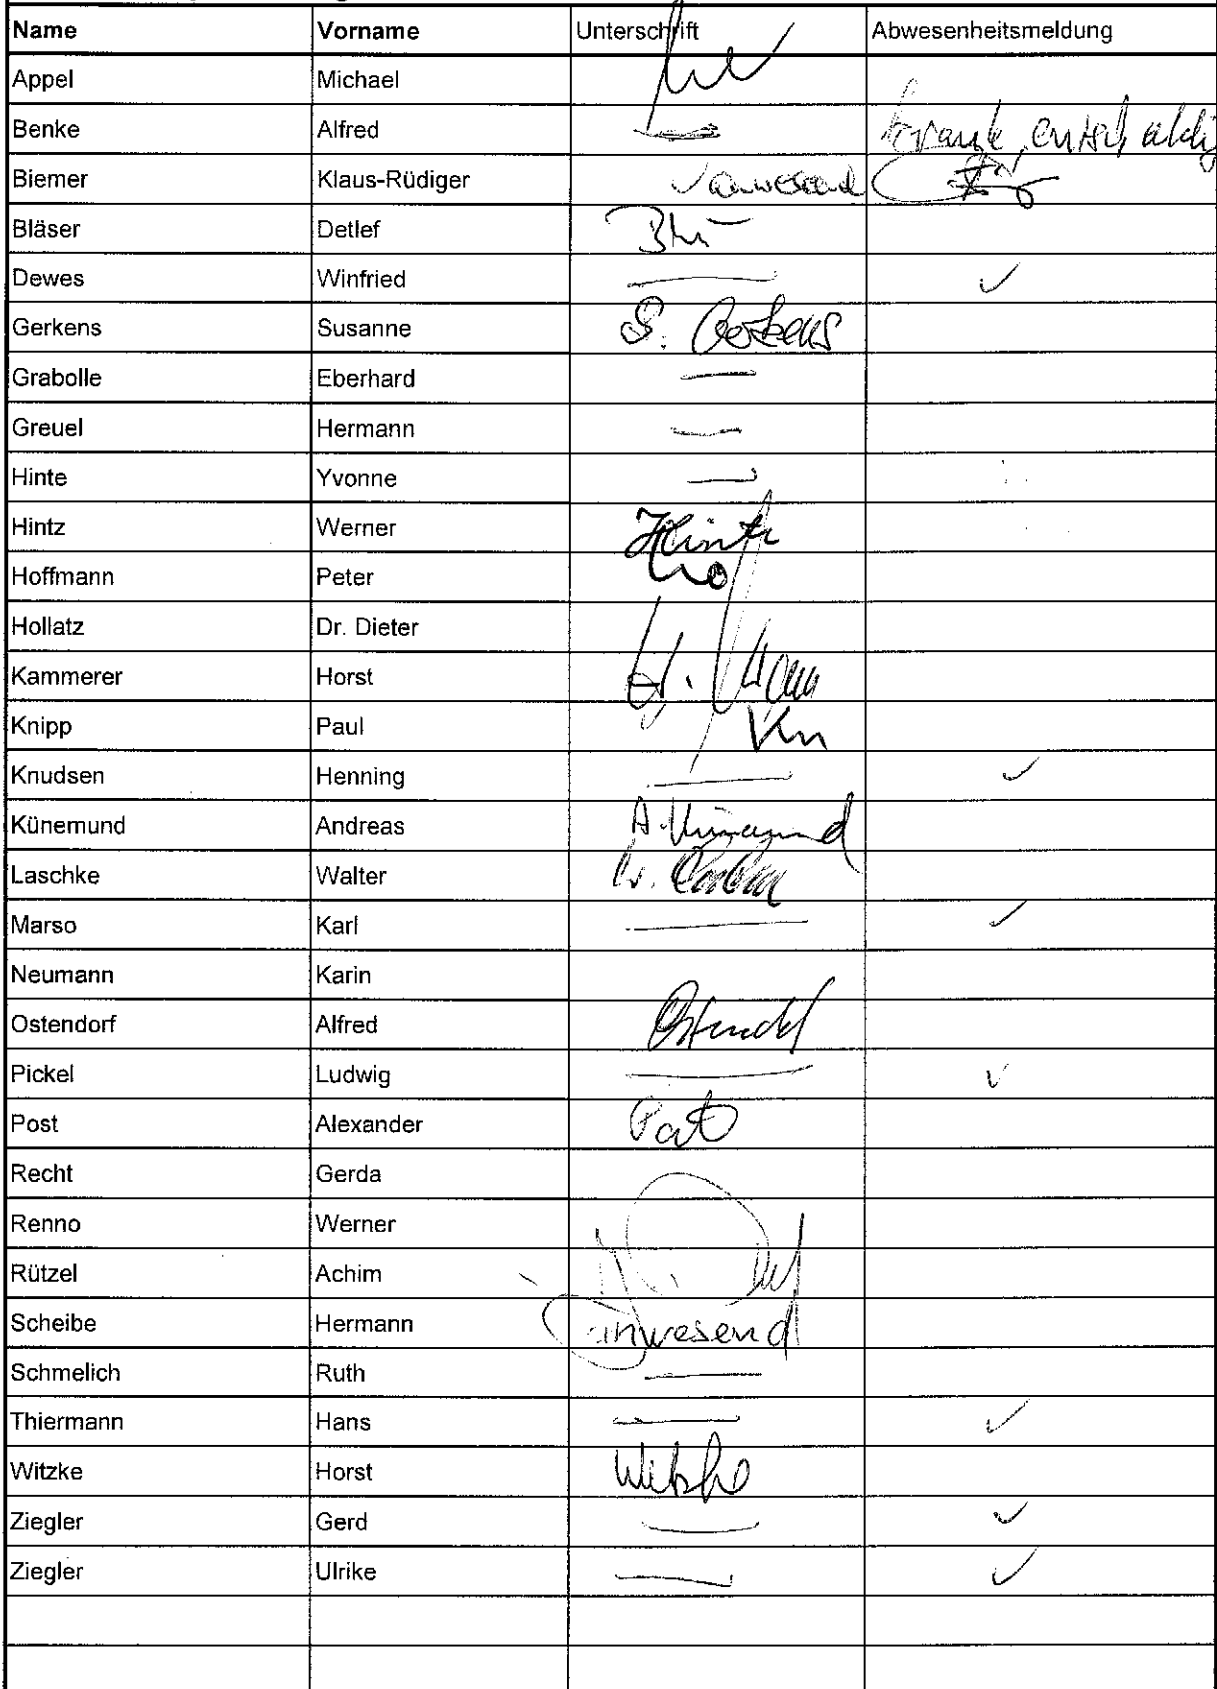 Name Vorname Unterschrift Abwesenheitsmeldung
Appel Michael
Benke Alfred krank, entschuldig
Biemer Klaus-Rüdiger anwesend
Bläser Detlef
Dewes Winfried ✓
Gerkens Susanne S. Gerkens
Grabolle Eberhard
Greuel Hermann
Hinte Yvonne
Hintz Werner Hintz
Hoffmann Peter
Hollatz Dr. Dieter
Kammerer Horst
Knipp Paul Kn
Knudsen Henning ✓
Künemund Andreas A. Künemund
Laschke Walter
Marso Karl ✓
Neumann Karin
Ostendorf Alfred
Pickel Ludwig ✓
Post Alexander Post
Recht Gerda
Renno Werner
Rützel Achim
Scheibe Hermann anwesend
Schmelich Ruth
Thiermann Hans ✓
Witzke Horst Witzke
Ziegler Gerd ✓
Ziegler Ulrike ✓